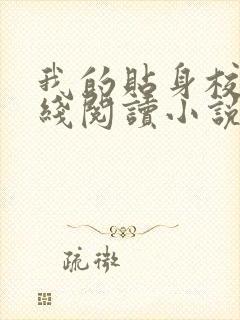 我的貼身校
綫閱讀小説
疏微